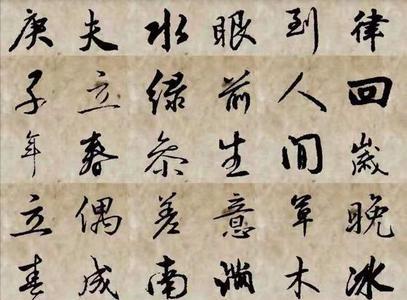 律回歲晚冰
到人間草木
眼前生意滿
水綠參差南
夫立春偶成
庚子年立春